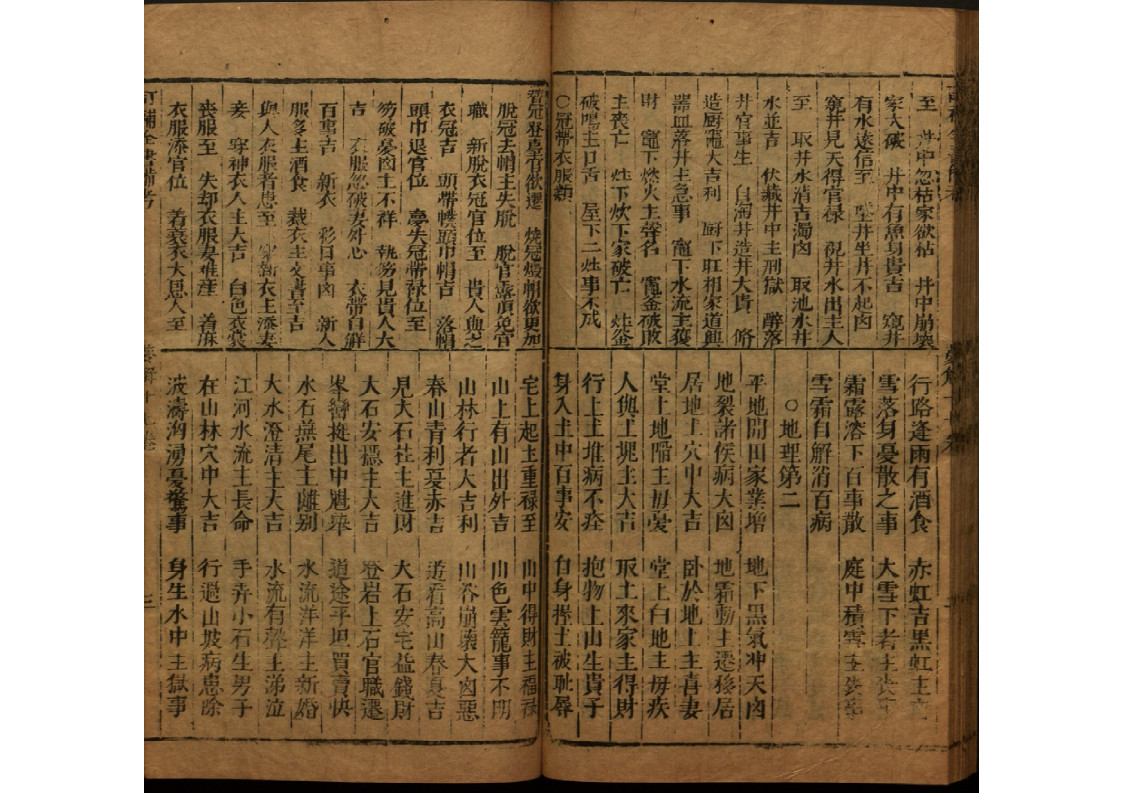 至　井中忽枯家欲枯　井中崩壞
家大破　井中有魚身貴吉　窺井
有水遠信至　坐井坐井不起凶
窺井見天得官禄　視井水出主人
至　取井水清吉濁凶　取池水井
水並吉　伏藏井中主刑獄　醉落
井官事生　自海井造井大貴　脩
造厨竈大吉利　厨下　相家道興
器血落井主急事　竈下水流主獲
財　竈下燃火主聲名　竈釜破敗
主喪亡　灶下炊下家破亡　灶釜
破鳴主口舌　屋下二灶事不成
○冠帶衣服類
行路逢雨有酒食　赤虹吉黑虹主
雪落身憂散之事　大雪下者主喪
霜露濃下百事散　庭中積雪主
雪霜自解消百病
○地理第二
平地開田家業增　地下黑氣冲天凶
地裂諸侯病大凶　地霜動主遷移居
居地上穴中大吉　卧於地上主喜妻
堂上地陷主母憂　堂上白地主毋疾
人與土堀主大吉　取土來家主得財
行上土堆病不痊　抱物上山生貴子
身入土中百事安　自身握土被耻辱
冠登臺官欲遷　燒冠燬帽欲更加
脫冠去帽主失脫　脫官露頂免官
職　新脫衣冠官位至　貴人與之
衣冠吉　頭帶幞頭巾帽吉　落帽
頭巾退官位　慶失冠帶禄位至
笏破憂凶主不祥　執笏見貴人大
吉　衣服忽破妻外心　衣帶自解
百事吉　新衣　彩日事凶　新人
服多主酒食　裁衣主文書至吉
與人衣服者患至　穿新衣主添妻
妾　穿神衣人主大吉　白色衣裳
喪服至　失却衣服妻难産　着麻
衣服添官位　着蓑衣大恩人至
宅上起土重禄至　山中得財主福禄
山上有山出外吉　山色雲籠事不明
山林行者大吉利　山谷崩壞大凶惡
春山青利夏赤吉　逍看高山春夏吉
見大石社主進財　大石安宅益錢財
大石安穩主大吉　登岩上石官職遷
峯巒挺出中魁舉　道途平坦買賣快
水石無尾主離别　水流洋洋主新婚
大水澄清主大吉　水流有聲主涕泣
江河水流主長命　手弄小石生男子
在山林穴中大吉　行過山坡病患除
波濤洶湧憂驚事　身生水中主獄事